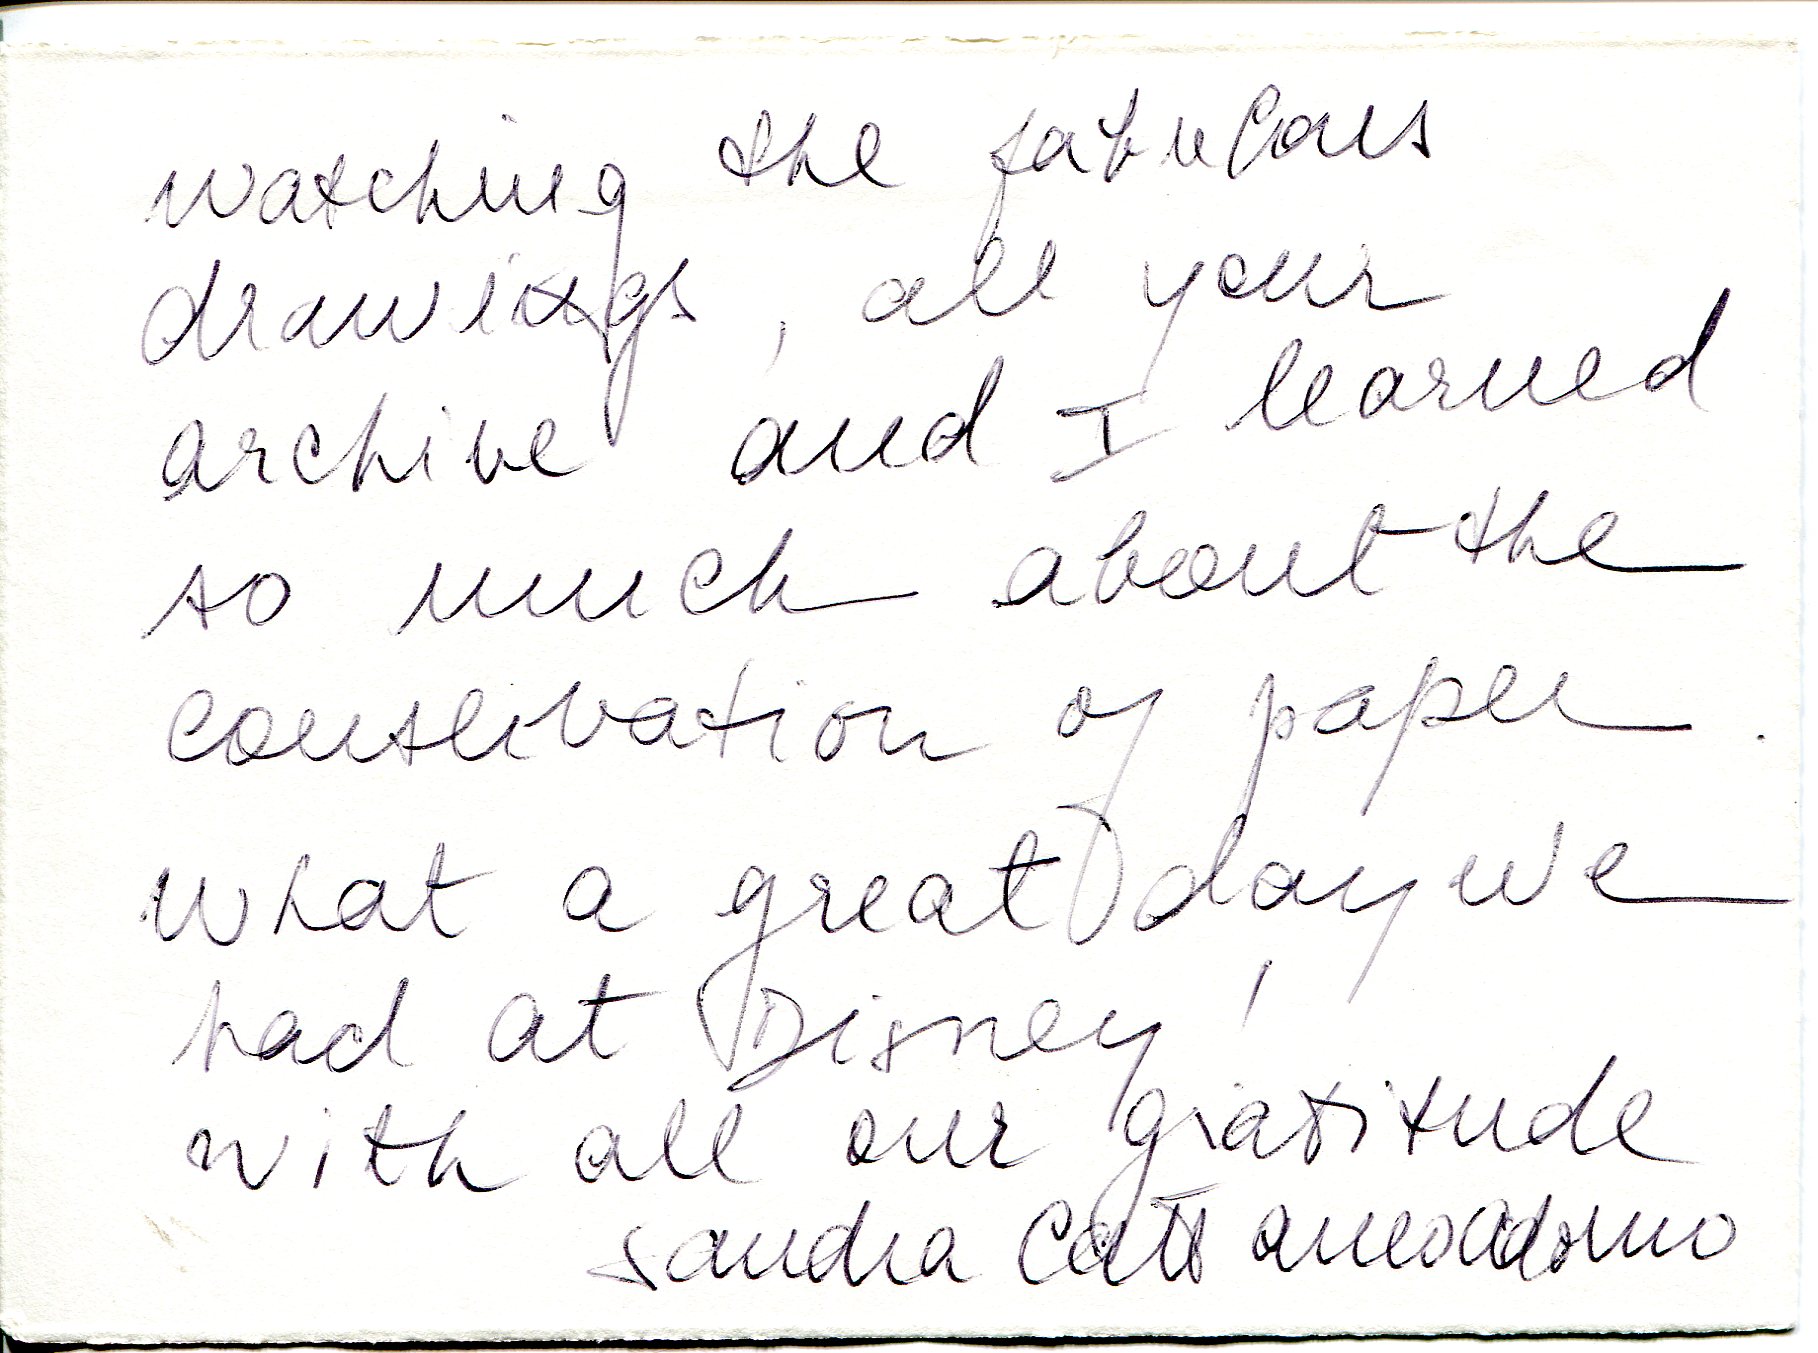 watching the fabulous
drawings, all your
archive and I learned
so much about the
conservation of paper.
What a great day we
had at Disney!
with all our gratitude
Sandra Cattaneo Adorno